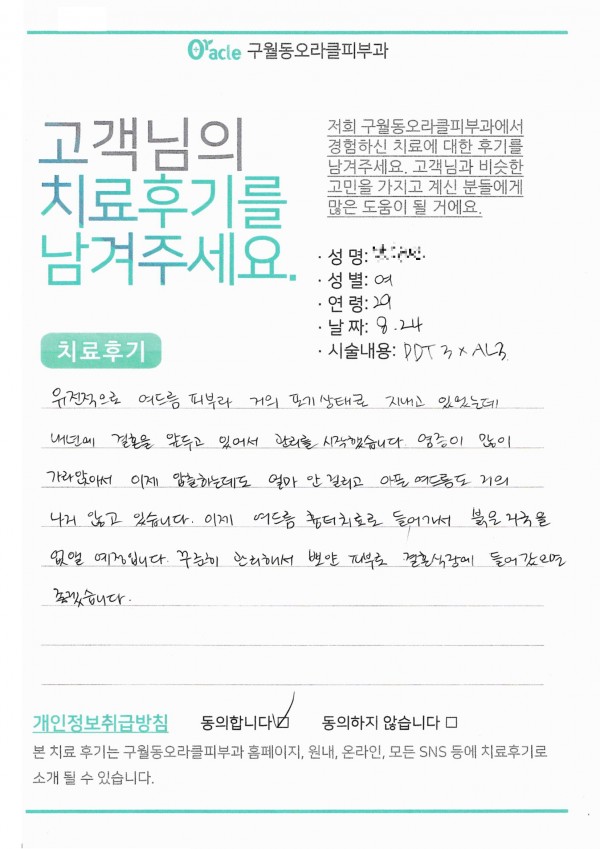 Oracle 구월동오라클피부과
고객님의
치료후기를
남겨주세요.
저희 구월동오라클피부과에서
경험하신 치료에 대한 후기를
남겨주세요. 고객님과 비슷한
고민을 가지고 계신 분들에게
많은 도움이 될 거에요.
· 성 명:
· 성 별: 여
· 연 령: 29
· 날 짜: 8.24
· 시술내용: PDT 3 x AL3
치료후기
유전적으로 여드름 피부라 거의 포기상태로 지내고 있었는데
내년에 결혼을 앞두고 있어서 관리를 시작했습니다 염증이 많이
가라앉아서 이제 압출하는데도 얼마 안 걸리고 아픈 여드름도 거의
나지 않고 있습니다. 이제 여드름 흉터치료로 들어가서 붉은 자국을
없앨 예정입니다. 꾸준히 관리해서 뽀얀 피부로 결혼식장에 들어갔으면
좋겠습니다.
개인정보취급방침 동의합니다 동의하지 않습니다
본 치료 후기는 구월동오라클피부과 홈페이지, 원내, 온라인, 모든 SNS 등에 치료후기로
소개 될 수 있습니다.